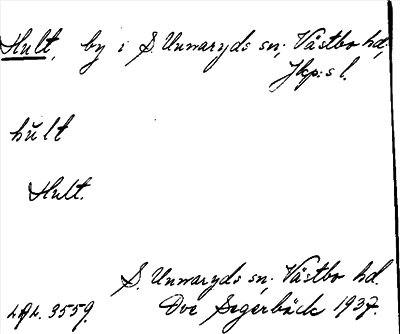 Hult, by i S. Unnaryds sn, Västbo hd,
Jkp:s l.
hu̇lt
Hult.
S. Unnaryds sn, Västbo hd.
Ove Segerbäck 1937.
3559.